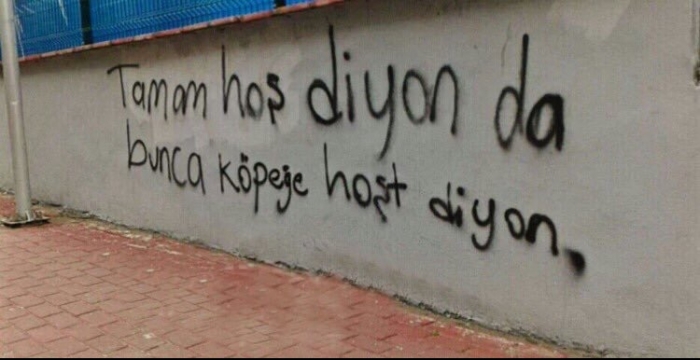 Tamam hoş diyon da
bunca köpeğe hoşt diyon.